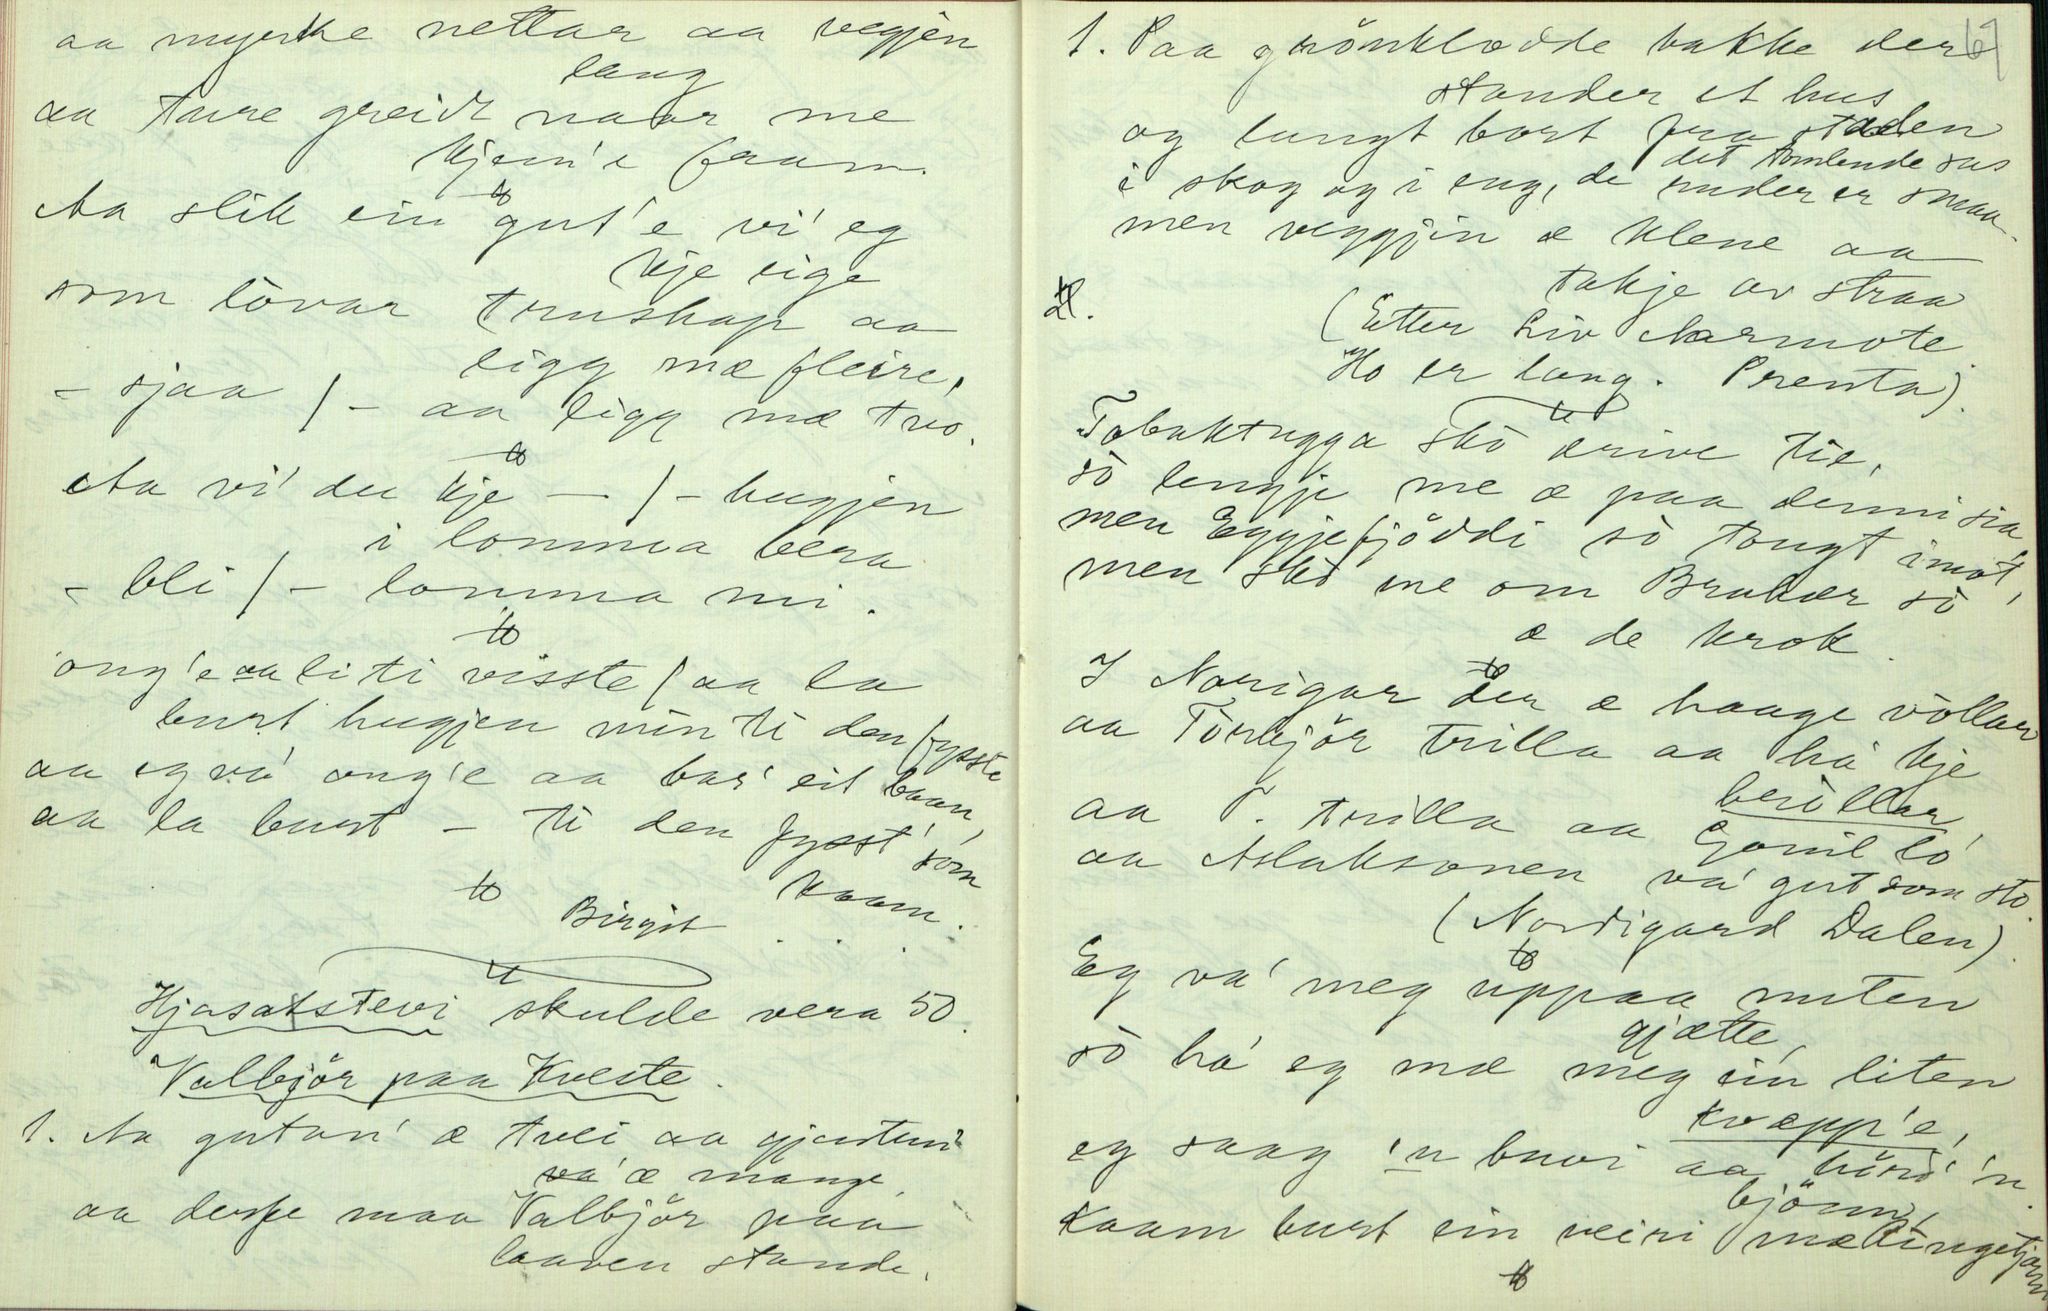 aa myrke nettar aa vegjen
lang
aa tare greidt naar me
kjem'e fram.
Aa slik ein gut'e vi' eg
kje eige
som lòvar truskap aa
ligg mæ fleire,
- sjaa / - aa ligg mæ tvo.
Aa vi' du kje - / - hugjen
i lomma bera
- bli / - lomma mi.
ong'e aa liti visste / aa la
burt hugjen min ti den fysste
aa eg va' ong'e aa bar' eit baan,
aa la burt - ti den fysst' som
kaam.
Birgit
Hjasatstevi skulde vera 50.
Valbjör paa Kveste.
1. Aa gutan' æ tvei aa gjentun'
æ mange
aa derfe maa Valbjör paa
laaven stande.
69
1. Paa grönklædde bakke der
stander et hus
og langt bort fra staden
det tomlende sus
i skog og i eng, de ruder er smaa
men veggjin æ klene aa
takje av straa
(Etter Liv Aarmote
Ho er lang. Prenta).
Tobaktugga skò drive tie,
sò lengje me æ paa denni sia
men Eggjefjöddi sò tongt imot,
men skò me om Brukær sò
æ de krok.
I Norigar der æ haage vòllar
aa Tòrbjör trilla aa ha' kje
beòllar,
aa T. trilla aa Gomil lo
aa Aslaksonen va' gut som sto.
(Nordigard Dalen).
Eg va' meg uppaa nuten
gjætte
sò ha' eg mæ meg ein liten
kvæpp'e,
eg saag 'n buvi aa hörd' 'n
björnn,
kaam burt ein veiri mæ Ringetjønn